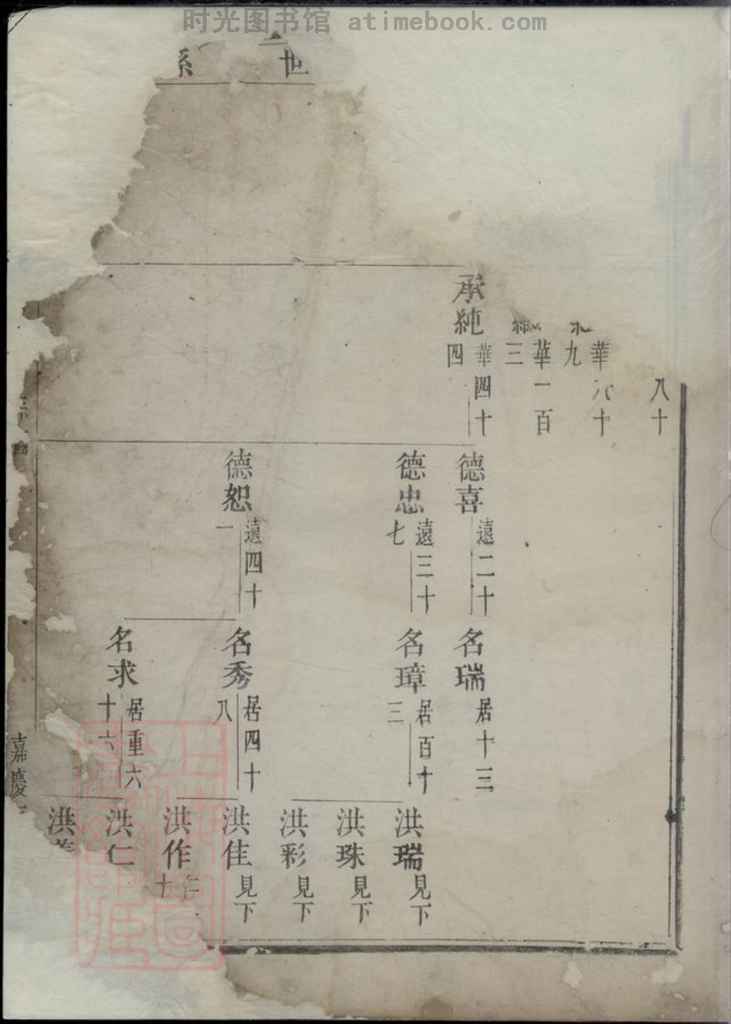 时光图书馆 atimebook.com
世系
八十
華六十
九
華一百
三
承純
華四十
四
德喜
遠二十
德忠
遠三十
七
德恕
遠四十
一
名瑞
居十三
名璋
居百十
三
名秀
居四十
八
名求
居重六
十六
洪瑞
見下
洪珠
見下
洪彩
見下
洪佳
見下
洪作
洪仁
洪
嘉慶